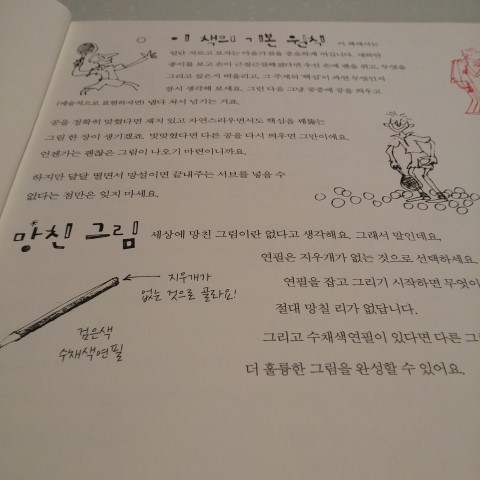 이 책의 기본 원칙 이 책에서는
일단 저르고 보자는 마음가짐을 중요하게 여깁니다. 새하얀
종이를 보고 손이 근질근질해졌다면 우선 손에 펜을 쥐고, 무엇을
그리고 싶은지 떠올리고, 그 주제의 '핵심'이 과연 무엇인지
잠시 생각해 보세요. 그런 다음 그냥 공중에 공을 띄우고
(예술적으로 표현하자면) 냅다 쳐서 넘기는 거죠.
공을 정확히 맞혔다면 재치 있고 자연스러우면서도 핵심을 꿰뚫는
그림 한 장이 생기겠죠. 빗맞혔다면 다른 공을 다시 띄우면 그만이에요.
언젠가는 괜찮은 그림이 나오기 마련이니까요.
하지만 달달 떨면서 망설이면 끝내주는 서브를 넣을 수
없다는 점만은 잊지 마세요.
망친 그림 세상에 망친 그림이란 없다고 생각해요. 그래서 말인데요,
연필은 지우개가 없는 것으로 선택하세요.
연필을 잡고 그리기 시작하면 무엇이
절대 망칠 리가 없답니다.
그리고 수채색연필이 있다면 다른 그
더 훌륭한 그림을 완성할 수 있어요.
지우개가
없는 것으로 골라요!
검은색
수채색연필